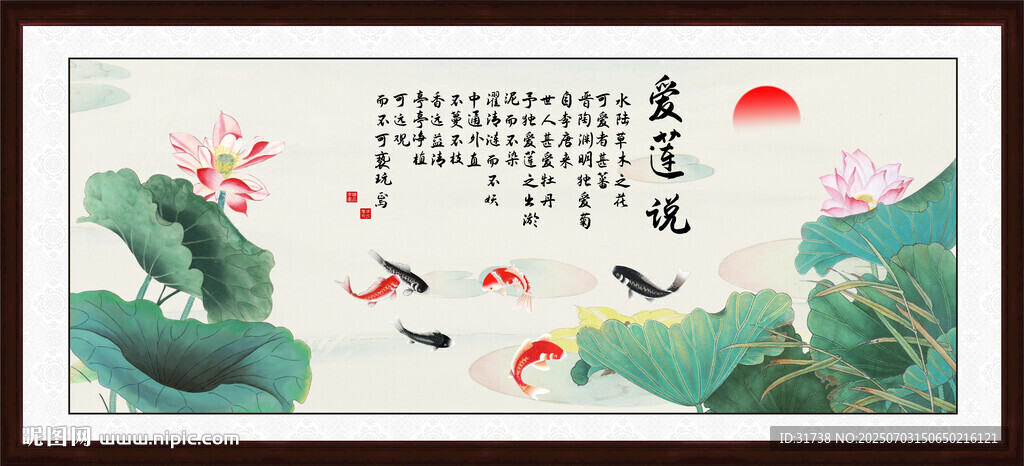 爱莲说
水陆草木之花
可爱者甚蕃
晋陶渊明独爱菊
自李唐来
世人甚爱牡丹
予独爱莲之出淤
泥而不染
濯清涟而不妖
中通外直
不蔓不枝
香远益清
亭亭净植
可远观
而不可亵玩焉
昵图网 www.nipic.com
ID:31738 NO:20250703150650216121